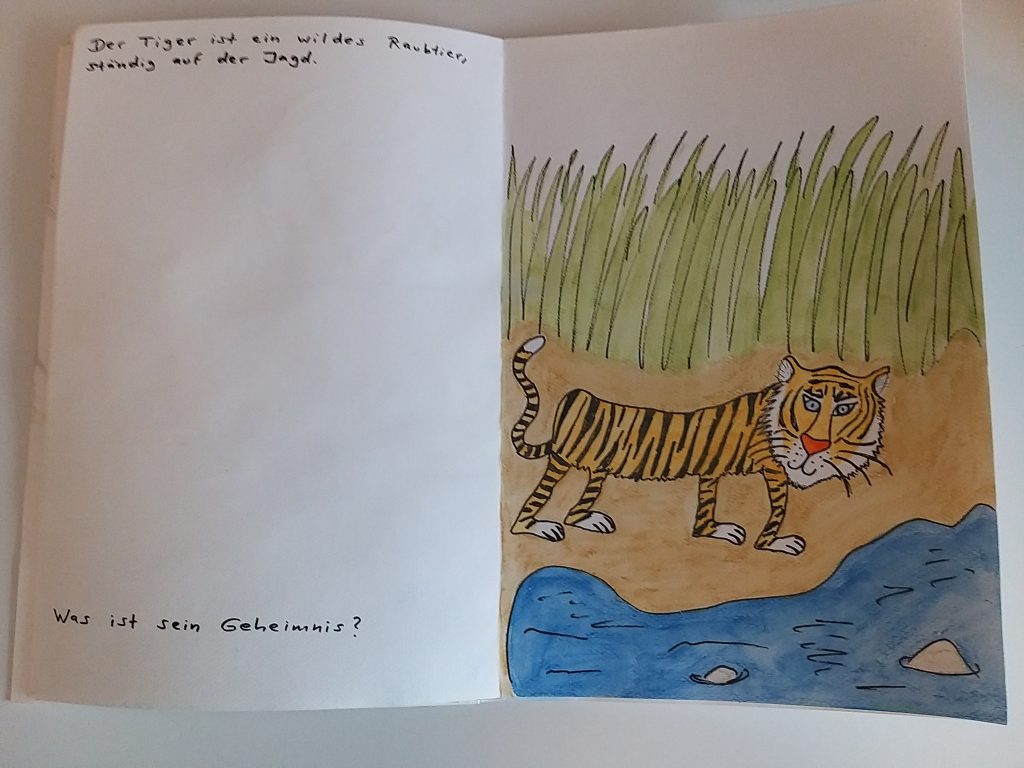 Der Tiger ist ein wildes Raubtier,
ständig auf der Jagd.
Was ist sein Geheimnis?